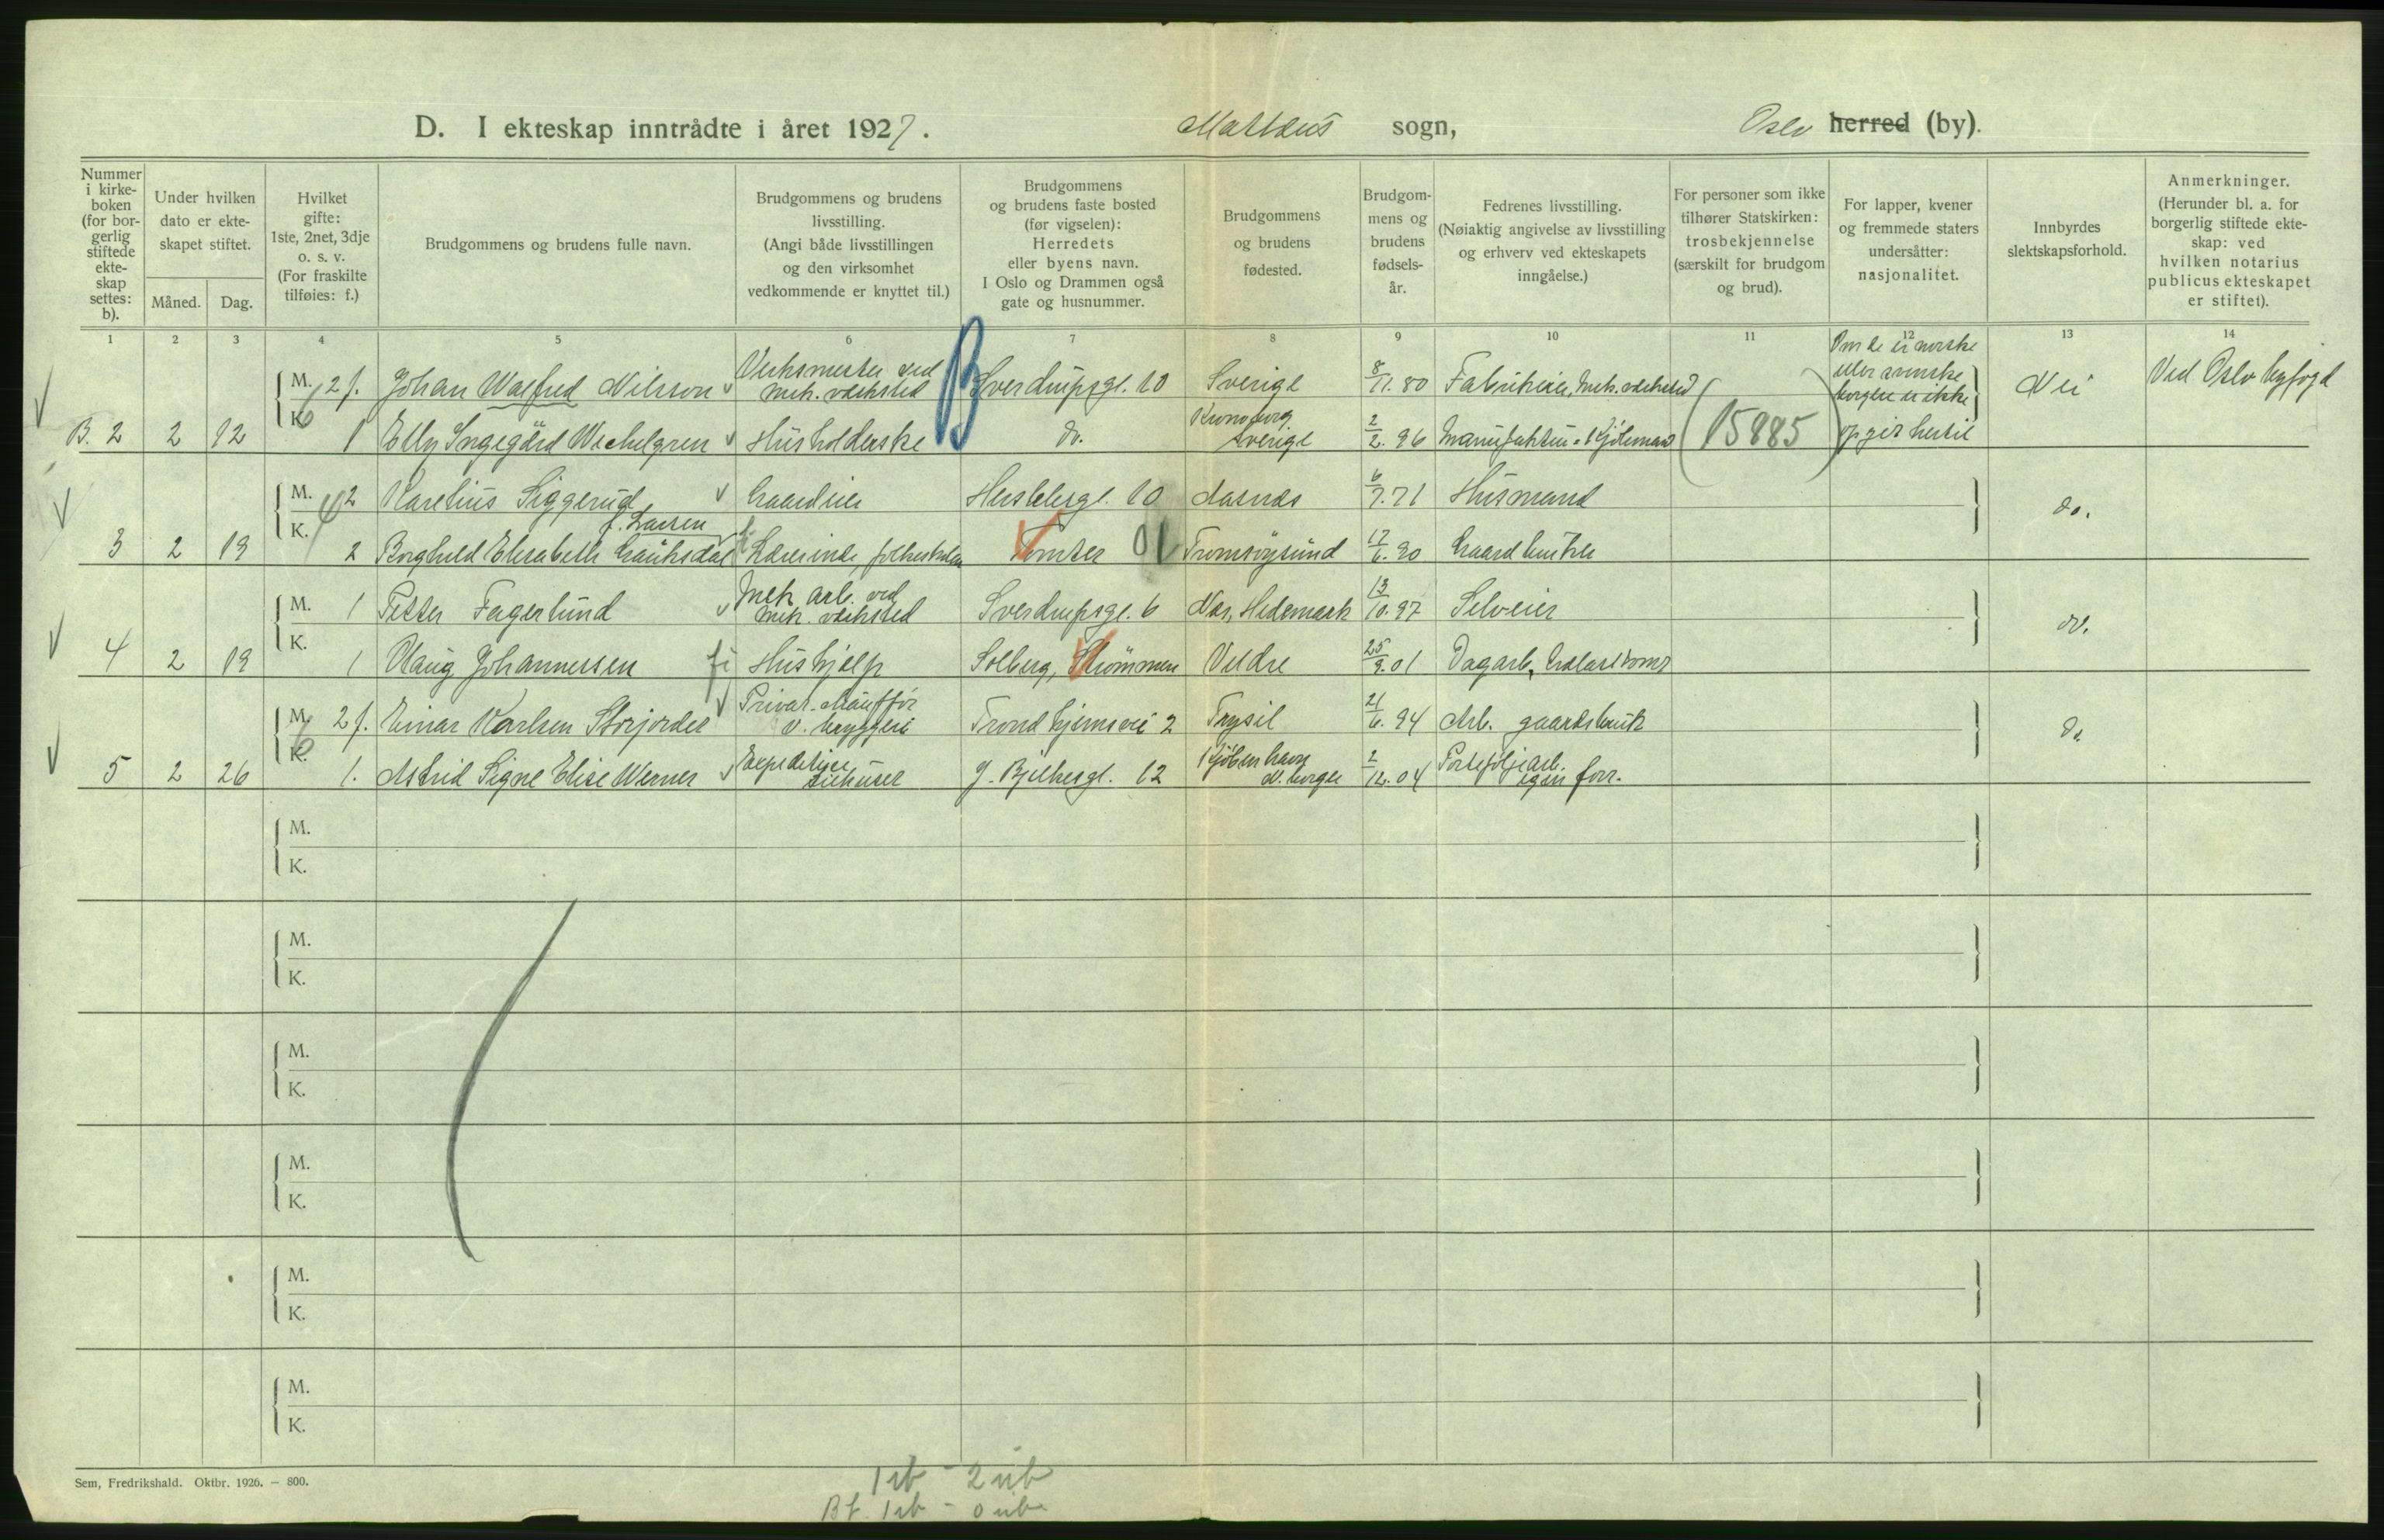 D. I ekteskap inntrådte i året 1927. Mattæus sogn, Oslo herred (by).
Nummer i kirke- boken (for bor- gerlig stiftede ekte- skap settes: b).
Under hvilken dato er ekte- skapet stiftet.
Måned. Dag.
Hvilket gifte: 1ste, 2net, 3dje o. s. v. (For fraskilte tilføies: f.)
Brudgommens og brudens fulle navn.
Brudgommens og brudens livsstilling. (Angi både livsstillingen og den virksomhet vedkommende er knyttet til.)
Brudgommens og brudens faste bosted (før vigselen): Herredets eller byens navn. I Oslo og Drammen også gate og husnummer.
Brudgommens og brudens fødested.
Brudgom- mens og brudens fødsels- år.
Fedrenes livsstilling. (Nøiaktig angivelse av livsstilling og erhverv ved ekteskapets inngåelse.)
For personer som ikke tilhører Statskirken: trosbekjennelse (særskilt for brudgom og brud).
For lapper, kvener og fremmede staters undersåtter: nasjonalitet.
Innbyrdes slektskapsforhold.
Anmerkninger. (Herunder bl. a. for borgerlig stiftede ekte- skap: ved hvilken notarius publicus ekteskapet er stiftet).
1 2 3 4 5 6 7 8 9 10 11 12 13 14
M. 2 f. Johan Walfred Nilsson Verksmester ved mek. verksted Sverdrupsgt. 10 Sverige 8/11. 80 Fabrikeier, mek. verksted Om de er norske eller svenske borgere er ikke Nei Ved Oslo byfogd
B. 2 2 12 K. 1 Elly Ingegärd Wechelgren Husholderske B do. Kronoberg Sverige 2/2. 96 Manufaktur-kjøbmand (15885) opgit hertil
M. 2 Karelius Siggerud Gaardeier Herslebsgt. 10 Aasnes 6/7. 71 Husmand do.
3 2 19 K. 2 Borghild Elisabeth Gauksdal f. Larsen Lærerinde, folkeskolen Tomter 01 Tromsøysund 17/6. 90 Gaardbruker
M. 1 Petter Fagerlund Mek arb. ved mek. verksted Sverdrupsgt. 6 Nes, Hedemark 13/10. 97 Selveier do.
4 2 19 K. 1 Olaug Johannessen Hushjelp Solberg, Strømmen Veldre 25/9. 01 Dagarb,
M. 2 f. Einar Karlsen Storjordet Privat-chauffør v. bryggeri Trondhjemsvei 2 Trysil 21/6. 94 Arb. gaardsbruk do
5 2 26 K. 1. Astrid Signe Elise Werner Expeditrice J. Bjelkesgt. 12 Kjøbenhavn N. borger 2/12. 04 Porteføljearb. egen forr.
M.
K.
M.
K.
M.
K.
M.
K.
M.
K.
M.
K.
Sem, Fredrikshald. Oktbr. 1926. — 800.
1 ib - 2 uib
Bf. 1 ib - 0 uib